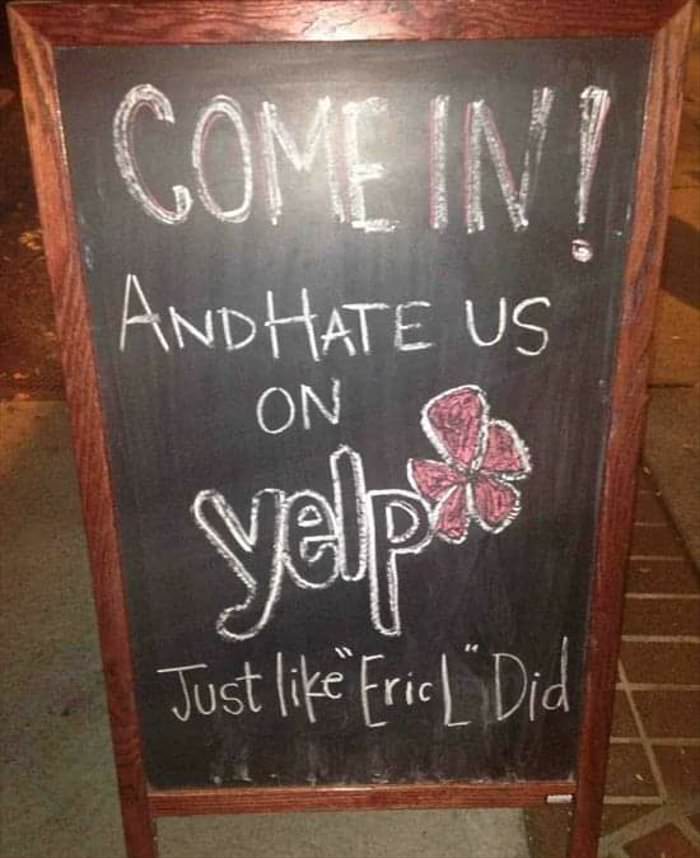 COME IN!
AND HATE US
ON
yelp
Just like "Eric L" Did